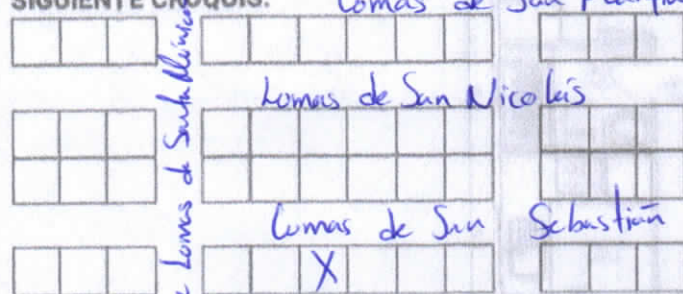 SIGUIENTE CROQUIS:
Lomas de San
Lomas de Santa Mónica
Lomas de San Nicolás
Lomas de San Sebastián
X